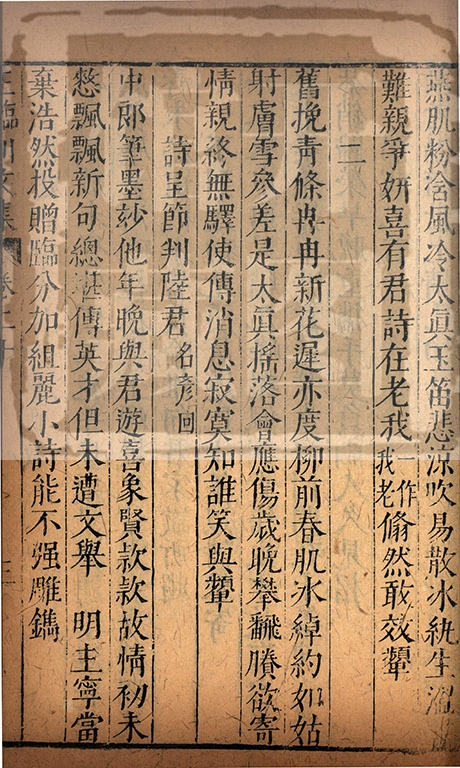 燕肌粉洽風冷太真玉笛悲涼吹易散冰紈生澀
難親爭妍喜有君詩在老我一作我老翛然敢效顰
二
舊挽青條冉冉新花遲亦度柳前春肌冰綽約如姑
射膚雪參差是太真搖落會應傷歲晚攀翻賸欲寄
情親終無驛使傳消息寂寞知誰笑與顰
詩呈節判陸君名彥回
中郎筆墨妙他年晚與君遊喜象賢款款故情初未
愁飄飄新句總堪傳英才但未遭文舉　明主寧當
棄浩然投贈臨分加組麗小詩能不强雕鐫
王臨川文集　卷二十